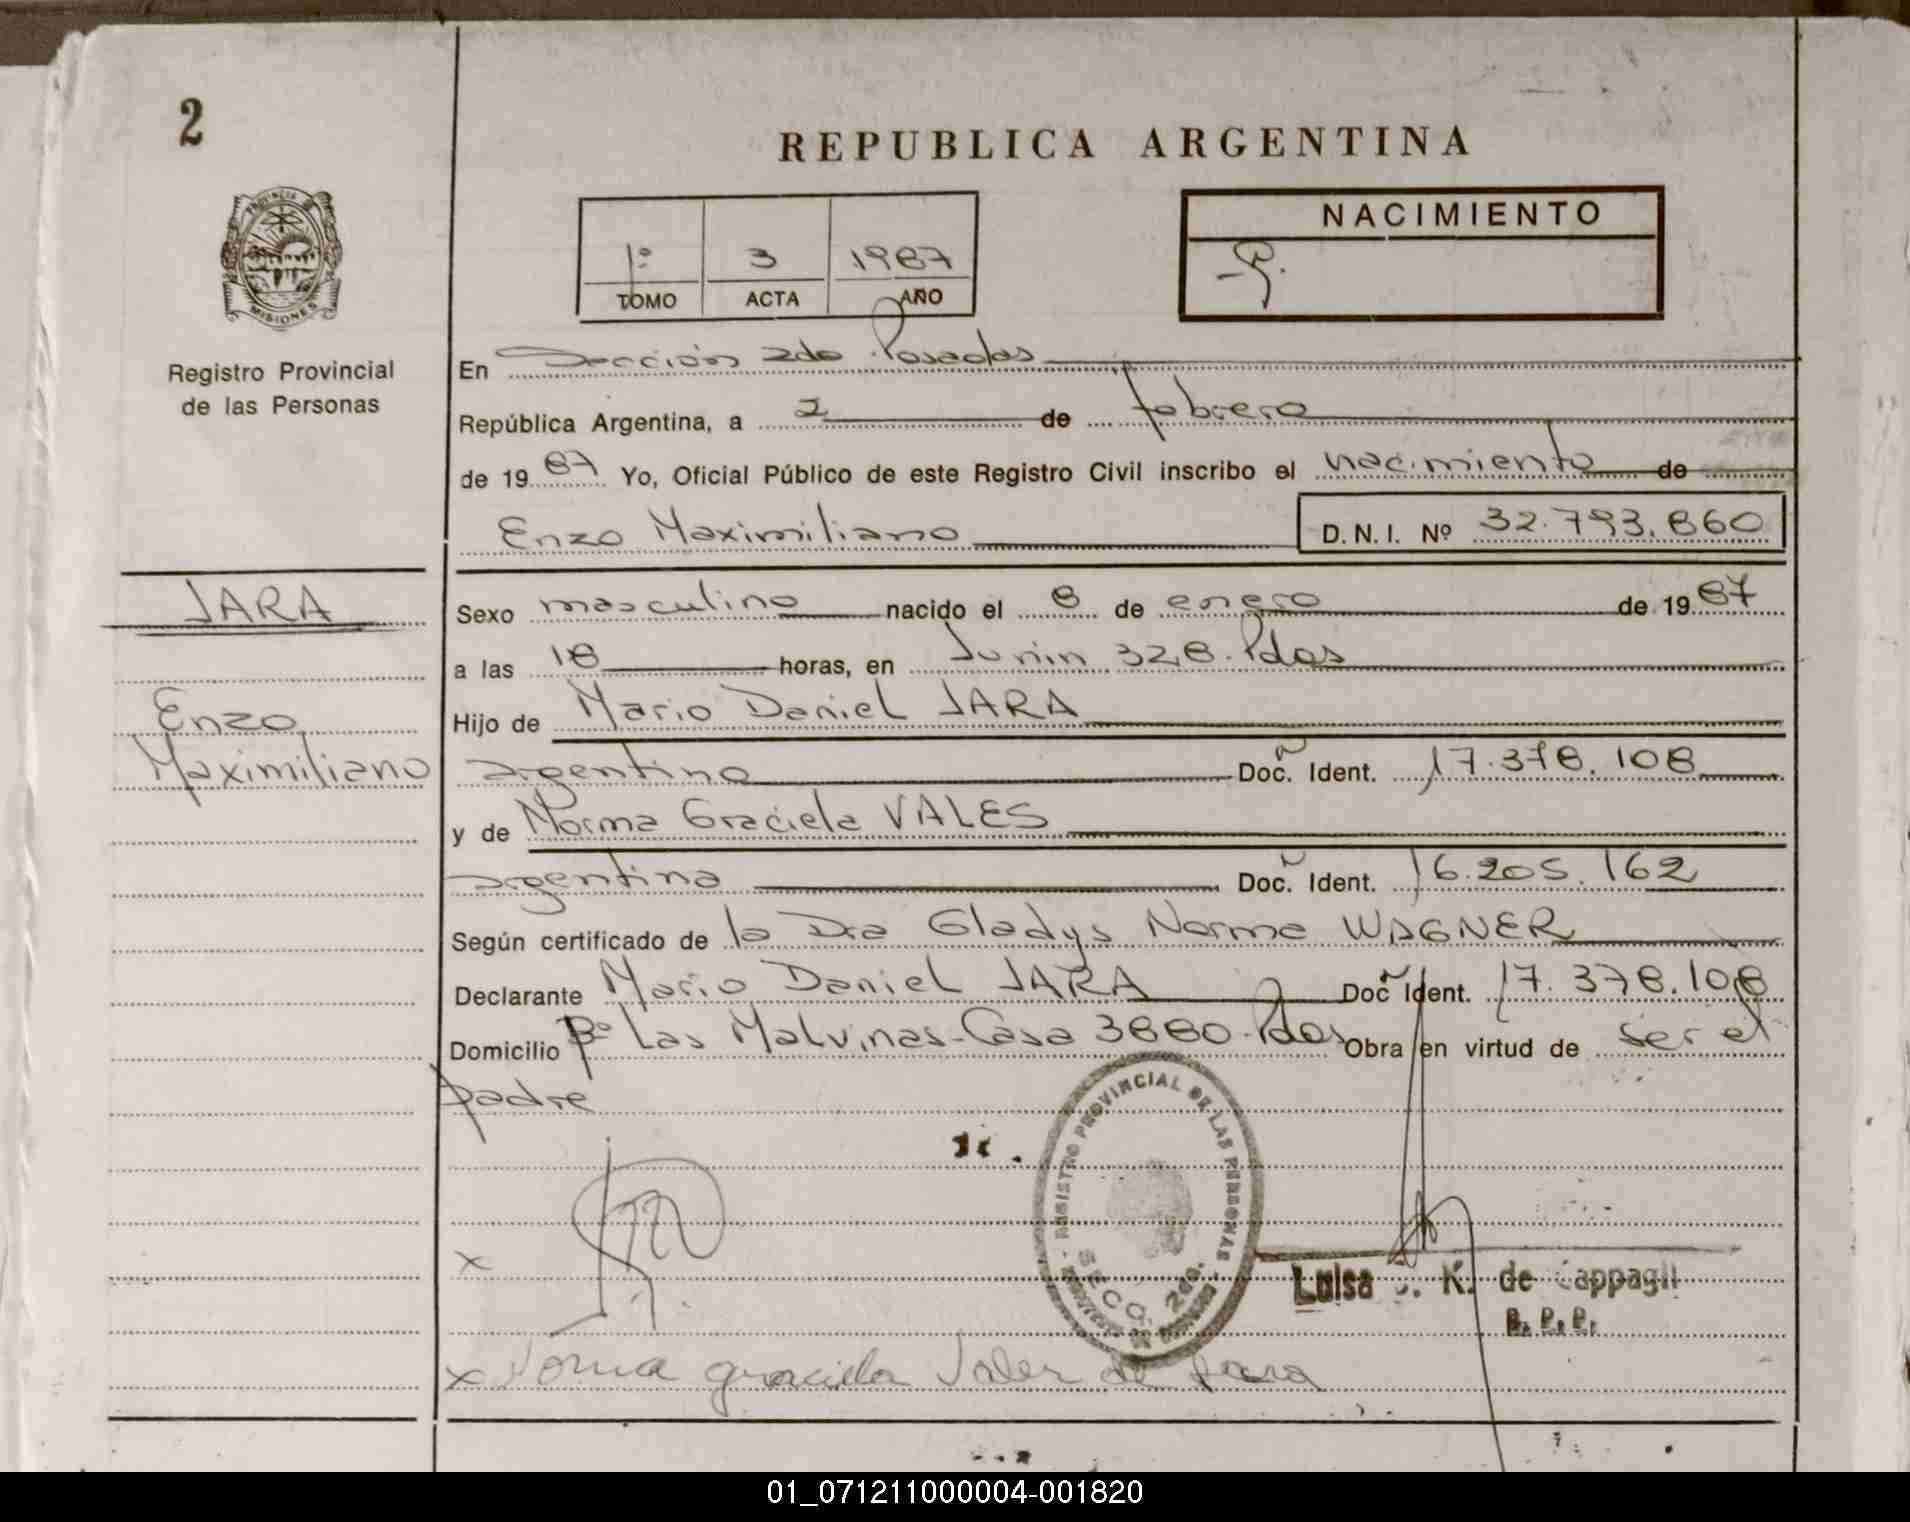 2
REPUBLICA ARGENTINA
PROVINCIA DE MISIONES
Registro Provincial
de las Personas
1º 3 1987
TOMO ACTA AÑO
NACIMIENTO
En Sección 2da Posadas
República Argentina, a 2 de febrero
de 1987 Yo, Oficial Público de este Registro Civil inscribo el nacimiento de
Enzo Maximiliano D.N.I. Nº 32.793.860
JARA
Enzo
Maximiliano
Sexo masculino nacido el 8 de enero de 1987
a las 18 horas, en Junin 328. Pdas
Hijo de Mario Daniel JARA
argentino Doc. Ident. 17.378.108
y de Norma Graciela VALES
argentina Doc. Ident. 16.205.162
Según certificado de la Dra Gladys Norma WAGNER
Declarante Mario Daniel JARA Doc Ident. 17.378.108
Domicilio Bº Las Malvinas-Casa 3880-Pdas Obra en virtud de ser el
padre
REGISTRO PROVINCIAL DE LAS PERSONAS
SECC. 2da.
x
Luisa K. de Cappagli
x Norma graciela Vales de Jara
01_071211000004-001820